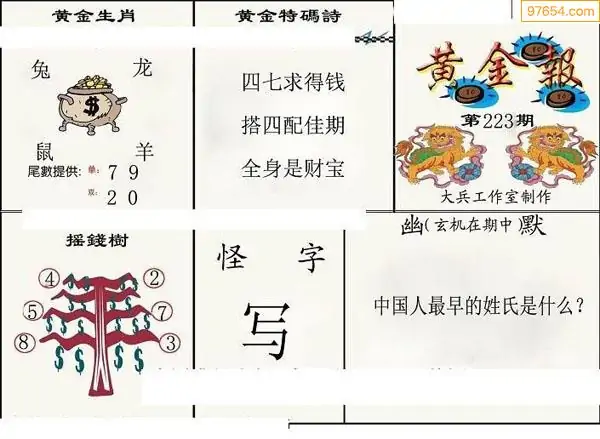 97654.com
黄金生肖
兔 龙
$
鼠 羊
尾數提供: 单: 7 9
双: 2 0
黄金特碼詩
四七求得钱
搭四配佳期
全身是财宝
黄金報
第223期
大兵工作室制作
摇錢樹
④ ②
⑤ ⑦
⑧ ③
$ $ $ $ $ $ $ $
怪 字
写
幽(玄机在期中)默
中国人最早的姓氏是什么?